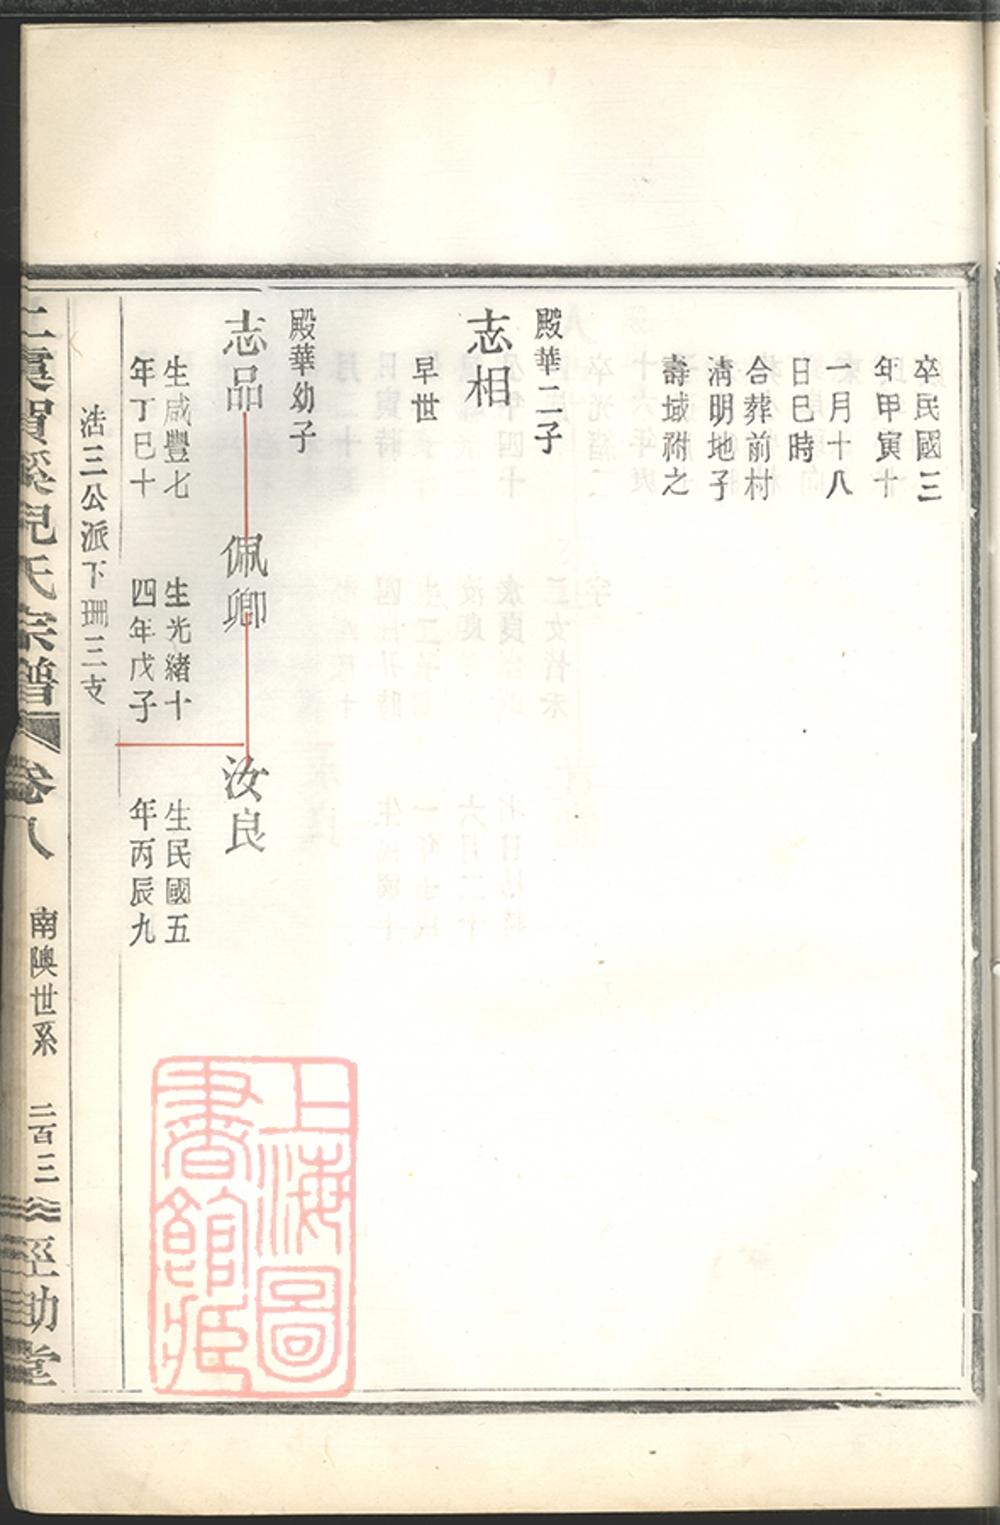 卒民國三
年甲寅十
一月十八
日巳時
合葬前村
淸明地子
壽域祔之
殿華二子
志相
早世
殿華幼子
志品
生咸豐七
年丁巳十
佩卿
生光緒十
四年戊子
汝良
生民國五
年丙辰九
浩三公派下珊三支
上虞賀溪兒氏宗譜
卷八
南陝世系
二百三
經助堂
上海圖書館藏